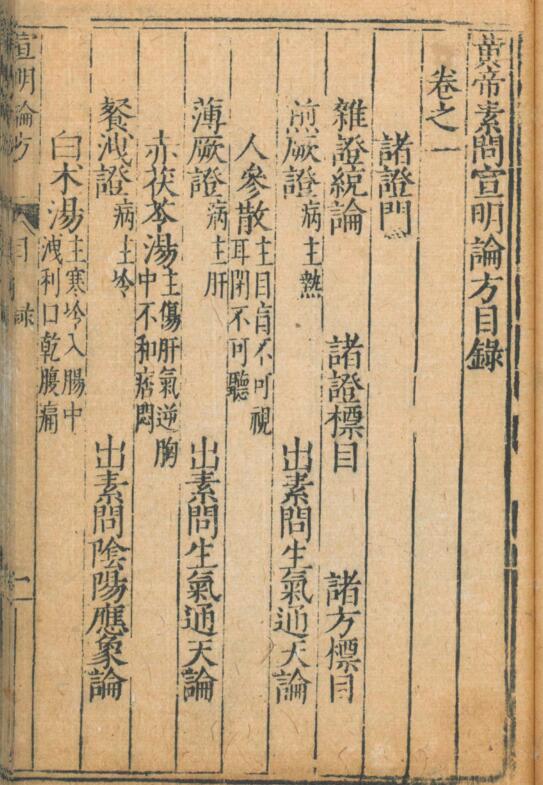 黃帝素問宣明論方目錄
卷之一
諸證門
雜證統論 諸證標目 諸方標目
煎厥證 病主熱 出素問生氣通天論
人參散 主目盲不可視
耳閉不可聽
薄厥證 病主肝 出素問生氣通天論
赤茯苓湯 主傷肝氣逆胸
中不和痞悶
餐洩證 病主冷 出素問陰陽應象論
白术湯 主寒冷入腸中
洩利口乾腹痛
宣明論方 目錄 二